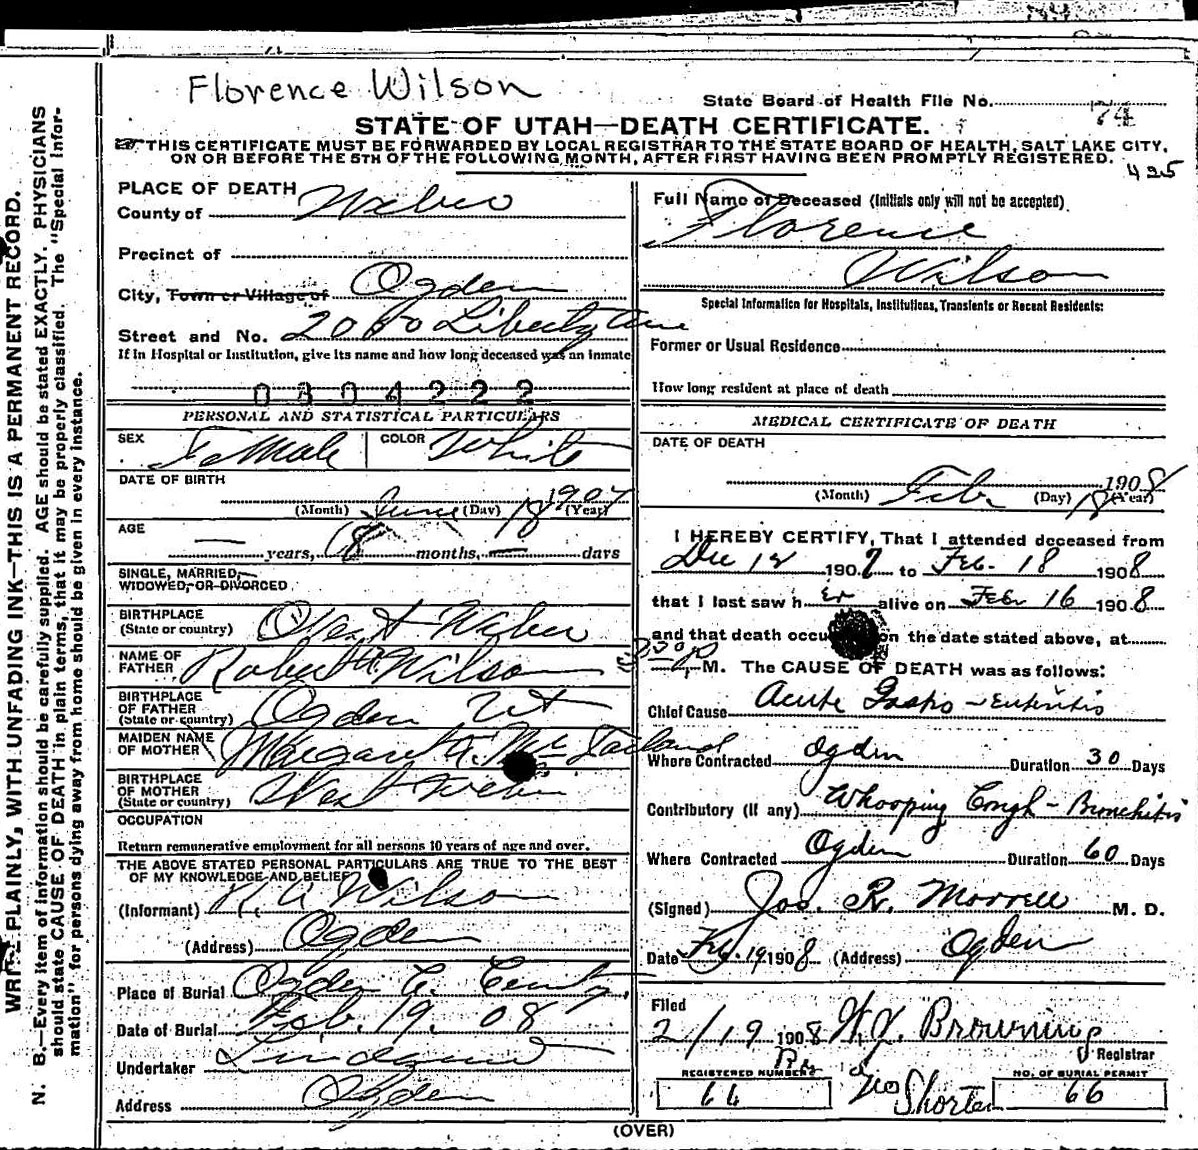 Florence Wilson
State Board of Health File No. 74
STATE OF UTAH—DEATH CERTIFICATE.
THIS CERTIFICATE MUST BE FORWARDED BY LOCAL REGISTRAR TO THE STATE BOARD OF HEALTH, SALT LAKE CITY,
ON OR BEFORE THE 5TH OF THE FOLLOWING MONTH, AFTER FIRST HAVING BEEN PROMPTLY REGISTERED.
425
WRITE PLAINLY, WITH UNFADING INK—THIS IS A PERMANENT RECORD.
N. B.—Every item of information should be carefully supplied. AGE should be stated EXACTLY. PHYSICIANS
should state CAUSE OF DEATH in plain terms, that it may be properly classified. The "Special Infor-
mation" for persons dying away from home should be given in every instance.
PLACE OF DEATH
County of Weber
Precinct of
City, Town or Village of Ogden
Street and No. 2060 Liberty Ave
If in Hospital or Institution, give its name and how long deceased was an inmate
0804222
PERSONAL AND STATISTICAL PARTICULARS
SEX Female COLOR White
DATE OF BIRTH
June 18 1907
(Month) (Day) (Year)
AGE
— years, 8 months, — days
SINGLE, MARRIED,
WIDOWED, OR DIVORCED
BIRTHPLACE
(State or country) West Weber
NAME OF
FATHER Robert A. Wilson
BIRTHPLACE
OF FATHER
(State or country) Ogden Ut
MAIDEN NAME
OF MOTHER Margaret A. McFarland
BIRTHPLACE
OF MOTHER
(State or country) West Weber
OCCUPATION
Return remunerative employment for all persons 10 years of age and over.
THE ABOVE STATED PERSONAL PARTICULARS ARE TRUE TO THE BEST
OF MY KNOWLEDGE AND BELIEF
(Informant) R. A. Wilson
(Address) Ogden
Place of Burial Ogden C. Cemetery
Date of Burial Feb. 19, 08
Undertaker Lindquist
Address Ogden
Full Name of Deceased (Initials only will not be accepted)
Florence
Wilson
Special Information for Hospitals, Institutions, Transients or Recent Residents:
Former or Usual Residence
How long resident at place of death
MEDICAL CERTIFICATE OF DEATH
DATE OF DEATH
Feb 18 1908
(Month) (Day) (Year)
I HEREBY CERTIFY, That I attended deceased from
Dec 12 1907 to Feb. 18 1908
that I last saw her alive on Feb 16 1908
and that death occu on the date stated above, at
M. The CAUSE OF DEATH was as follows:
Chief Cause Acute Gastro-Enteritis
Where Contracted Ogden Duration 30 Days
Contributory (if any) Whooping Cough - Bronchitis
Where Contracted Ogden Duration 60 Days
(Signed) Jos. R. Morrell M. D.
Date Feb. 19, 1908 (Address) Ogden
Filed
2/19 1908 W. J. Browning
Registrar
REGISTERED NUMBER
66
Shorten
NO. OF BURIAL PERMIT
66
(OVER)